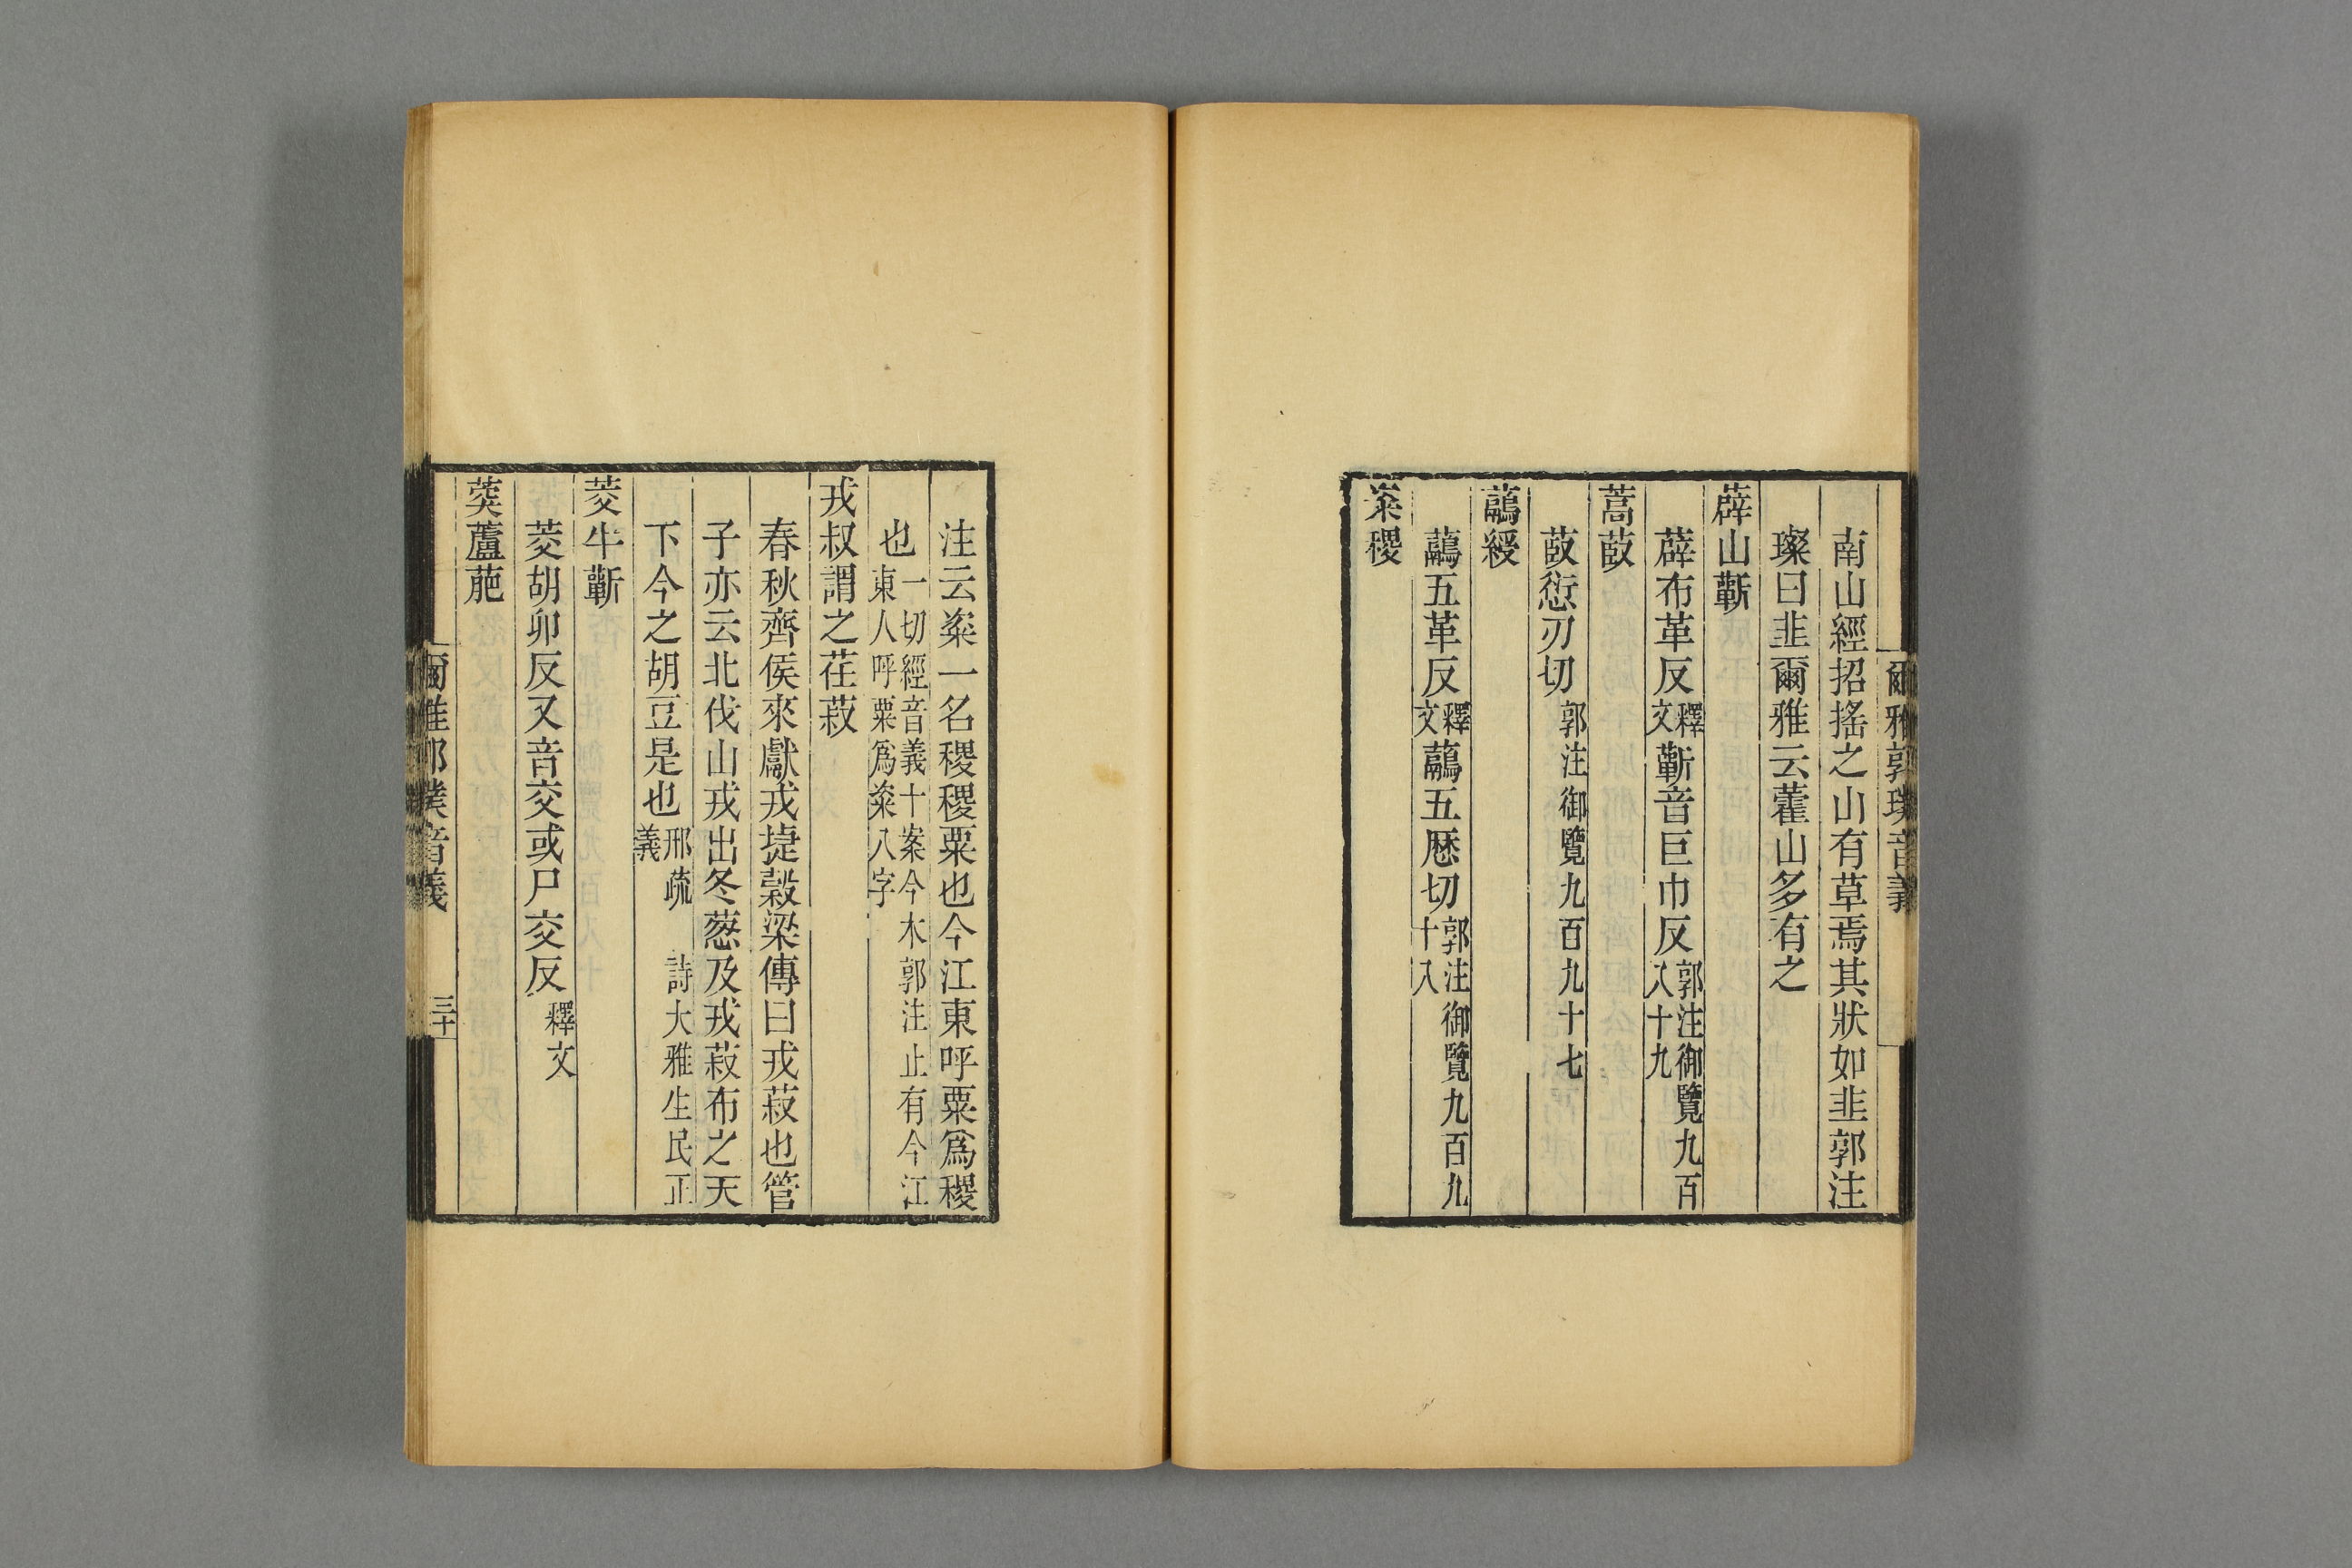 爾雅郭璞音義
南山經招搖之山有草焉其狀如韭郭注
璨曰韭爾雅云藿山多有之
薜山蘄
薜布革反釋文蘄音巨巾反郭注御覽九百八十九
蒿菣
菣愆刃切郭注御覽九百九十七
虉綬
虉五革反釋文虉五歷切郭注御覽九百九十八
粢稷
注云粢一名稷稷粟也今江東呼粟爲稷
也一切經音義十案今木郭注止有今江東人呼粟爲粢八字
戎叔謂之荏菽
春秋齊侯來獻戎捷穀梁傳曰戎菽也管
子亦云北伐山戎出冬蔥及戎菽布之天
下今之胡豆是也邢疏 詩大雅生民正義
茭牛蘄
茭胡卯反又音交或尸交反釋文
葖蘆萉
爾雅郭璞音義 三十